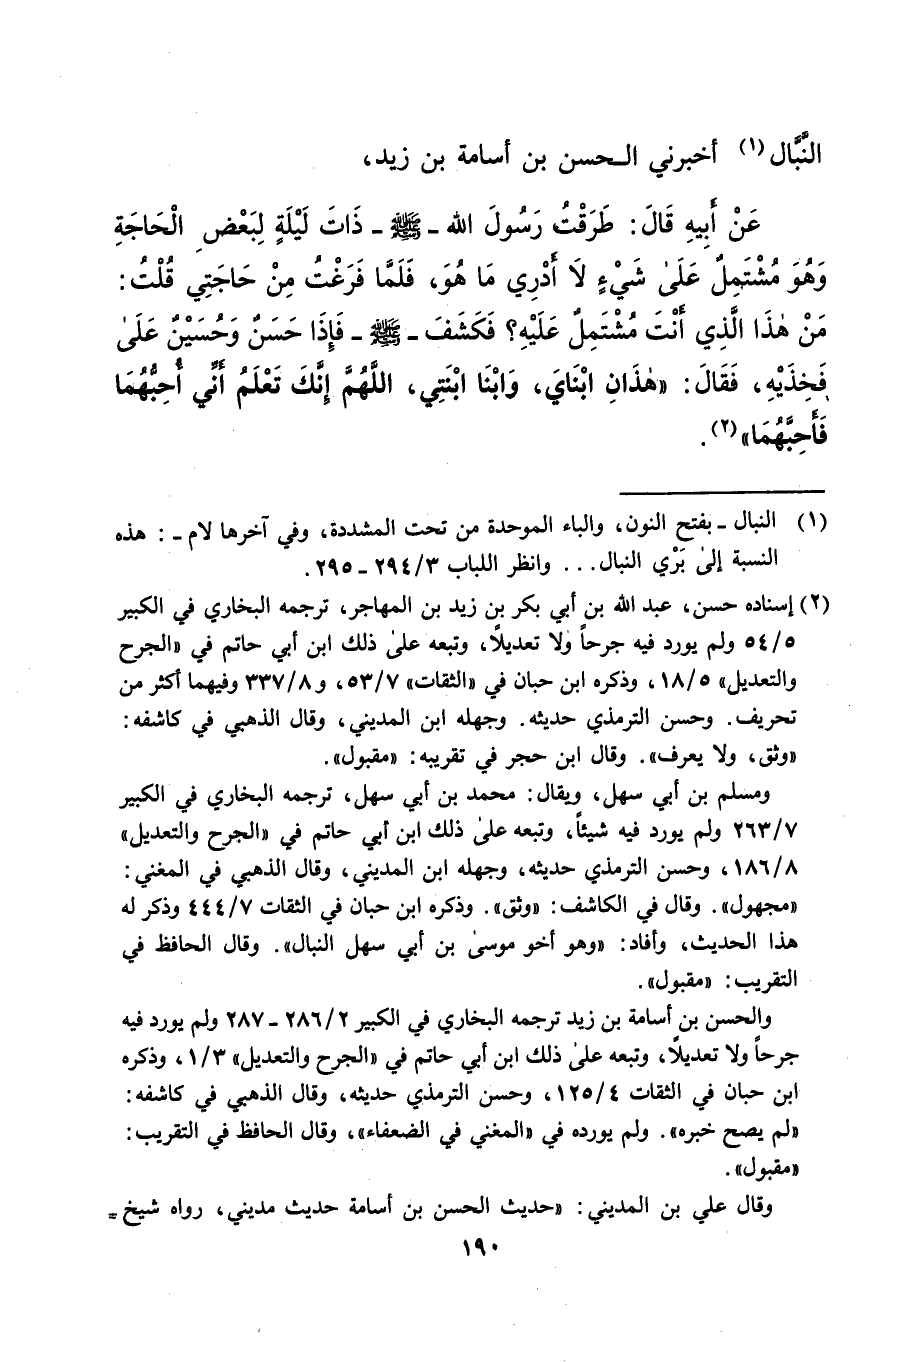 النَّبَّال(١) أخبرني الـحسن بن أسامة بن زيد،
عَنْ أَبِيهِ قَالَ: طَرَقْتُ رَسُولَ الله ـ ﷺ ـ ذَاتَ لَيْلَةٍ لِبَعْضِ الْحَاجَةِ
وَهُوَ مُشْتَمِلٌ عَلَىٰ شَيْءٍ لاَ أَدْرِي مَا هُوَ، فَلَمَّا فَرَغْتُ مِنْ حَاجَتِي قُلْتُ:
مَنْ هٰذَا الَّذِي أَنْتَ مُشْتَمِلٌ عَلَيْهِ؟ فَكَشَفَ ـ ﷺ ـ فَإِذَا حَسَنٌ وَحُسَيْنٌ عَلَىٰ
فَخِذَيْهِ، فَقَالَ: «هٰذَانِ ابْنَايَ، وَابْنَا ابْنَتِي، اللَّهُمَّ إِنَّكَ تَعْلَمُ أَنِّي أُحِبُّهُمَا
فَأَحِبَّهُمَا»(٢).
(١) النبال ـ بفتح النون، والباء الموحدة من تحت المشددة، وفي آخرها لام ـ: هذه
النسبة إلىٰ بَرْي النبال... وانظر اللباب ٢٩٤/٣ ـ ٢٩٥.
(٢) إسناده حسن، عبد الله بن أبي بكر بن زيد بن المهاجر، ترجمه البخاري في الكبير
٥٤/٥ ولم يورد فيه جرحاً ولا تعديلاً، وتبعه علىٰ ذلك ابن أبي حاتم في «الجرح
والتعديل» ١٨/٥، وذكره ابن حبان في «الثقات» ٥٣/٧، و٣٣٧/٨ وفيهما أكثر من
تحريف. وحسن الترمذي حديثه. وجهله ابن المديني، وقال الذهبي في كاشفه:
«وثق، ولا يعرف». وقال ابن حجر في تقريبه: «مقبول».
ومسلم بن أبي سهل، ويقال: محمد بن أبي سهل، ترجمه البخاري في الكبير
٢٦٣/٧ ولم يورد فيه شيئاً، وتبعه علىٰ ذلك ابن أبي حاتم في «الجرح والتعديل»
١٨٦/٨، وحسن الترمذي حديثه، وجهله ابن المديني، وقال الذهبي في المغني:
«مجهول». وقال في الكاشف: «وثق». وذكره ابن حبان في الثقات ٤٤٤/٧ وذكر له
هذا الحديث، وأفاد: «وهو أخو موسىٰ بن أبي سهل النبال». وقال الحافظ في
التقريب: «مقبول».
والحسن بن أسامة بن زيد ترجمه البخاري في الكبير ٢٨٦/٢ ـ ٢٨٧ ولم يورد فيه
جرحاً ولا تعديلاً، وتبعه علىٰ ذلك ابن أبي حاتم في «الجرح والتعديل» ١/٣، وذكره
ابن حبان في الثقات ١٢٥/٤، وحسن الترمذي حديثه، وقال الذهبي في كاشفه:
«لم يصح خبره». ولم يورده في «المغني في الضعفاء»، وقال الحافظ في التقريب:
«مقبول».
وقال علي بن المديني: «حديث الحسن بن أسامة حديث مديني، رواه شيخ =
١٩٠